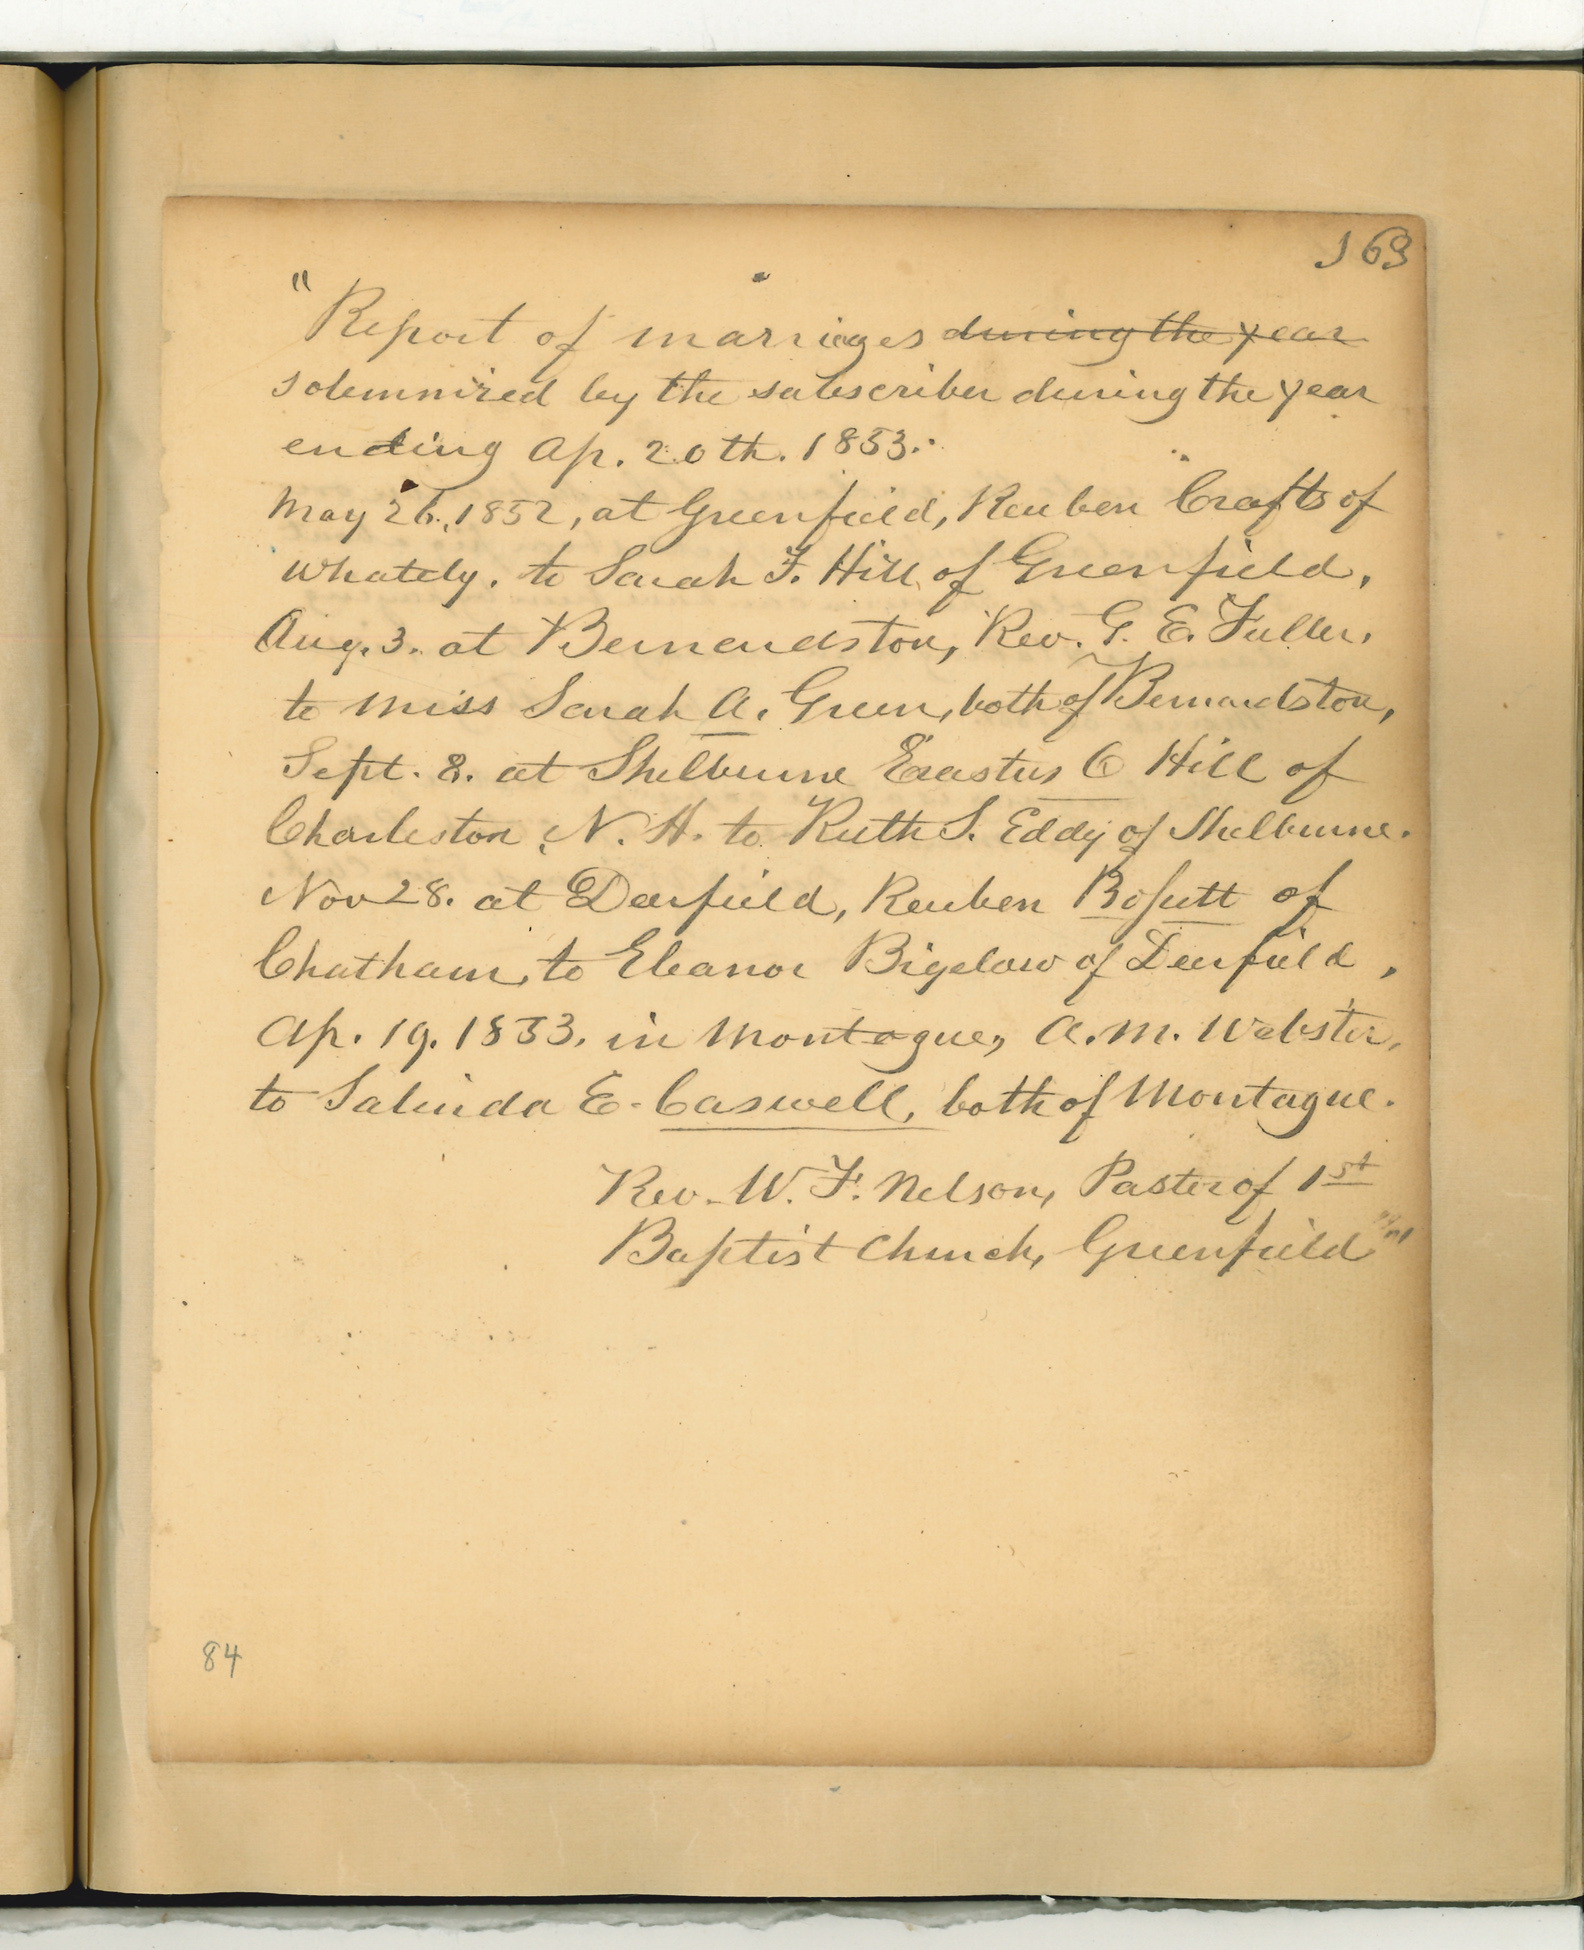 163
"Report of marriages during the year
solemnized by the subscriber during the year
ending Ap. 20th. 1853.
May 26, 1852, at Greenfield, Reuben Crafts of
Whately. to Sarah F. Hill of Greenfield,
Aug. 3. at Bernardston, Rev. G. E. Fuller,
to Miss Sarah A. Green, both of Bernardston,
Sept. 8. at Shelburne Erastus O Hill of
Charleston, N. H. to Ruth S. Eddy of Shelburne.
Nov 28. at Deerfield, Reuben of
Chatham, to Eleanor Bigelow of Deerfield,
Ap. 19. 1853, in Montague, A. M. Webster,
to Salinda E. Caswell, both of Montague.
Rev. W. F. Nelson, Pastor of 1st
Baptist Church, Greenfield"
84